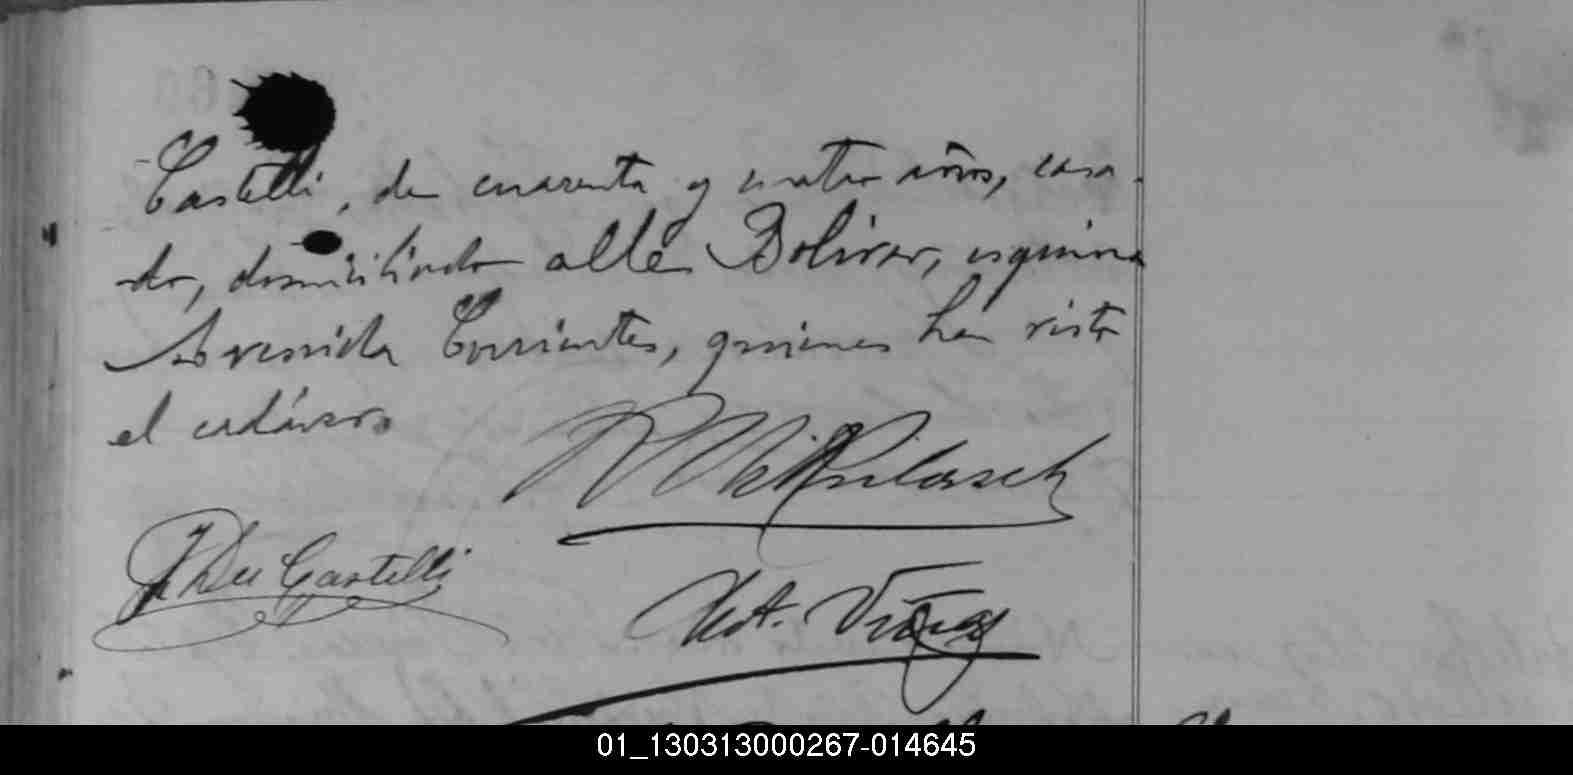 Castelli, de cuarenta y cuatro años, casa-
do, domiciliado calle Bolivar, esquina
Avenida Corrientes, quienes han visto
el cadáver.
Du Castelli
01_130313000267-014645